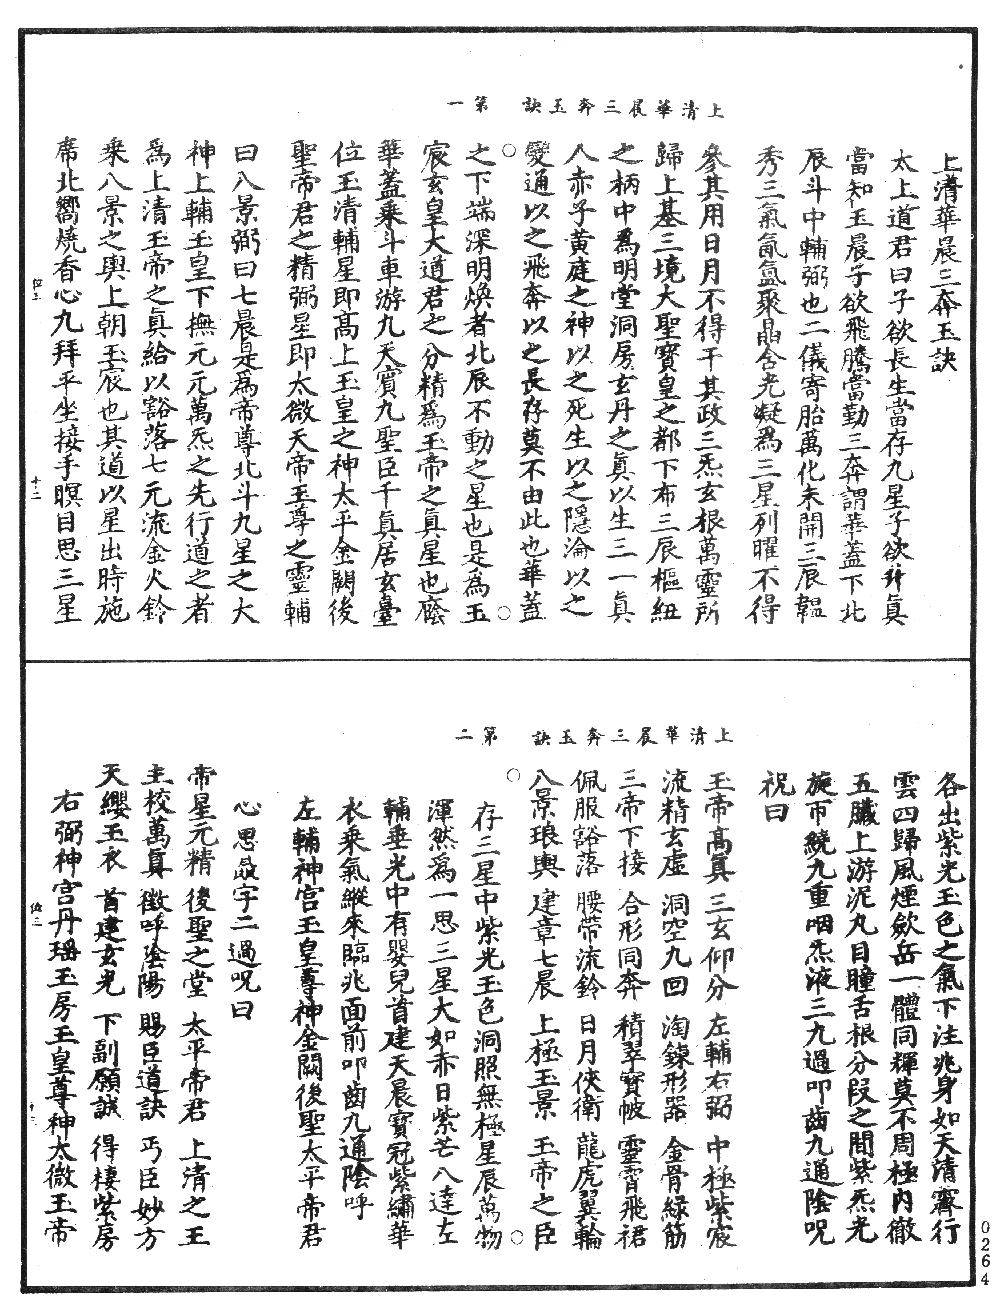 上清華晨三奔玉訣　第一
上清華晨三奔玉訣
太上道君曰子欲長生當存九星子欲升眞
當知玉晨子欲飛騰當勤三奔謂華蓋下北
辰斗中輔弼也二儀寄胎萬化未開三辰韞
秀三氣氤氳聚晶含光凝爲三星列曜不得
參其用日月不得干其政三炁玄根萬靈所
歸上基三境大聖寶皇之都下布三辰樞紐
之柄中爲明堂洞房玄丹之眞以生三一眞
人赤子黃庭之神以之死生以之隱淪以之
變通以之飛奔以之長存莫不由此也華蓋
之下端深明煥者北辰不動之星也是爲玉
宸玄皇大道君之分精爲玉帝之眞星也廕
華蓋乘斗車游九天賓九聖臣千眞居玄臺
位玉清輔星即髙上玉皇之神太平金闕後
聖帝君之精弼星即太微天帝玉尊之靈輔
曰八景弼曰七晨是爲帝尊北斗九星之大
神上輔玉皇下撫元元萬炁之先行道之者
爲上清玉帝之眞給以豁落七元流金火鈴
乘八景之輿上朝玉宸也其道以星出時施
席北嚮燒香心九拜平坐接手瞑目思三星
上清華晨三奔玉訣　第二
各出紫光玉色之氣下注兆身如天清霽行
雲四歸風煙歛岳一體同輝莫不周極內徹
五臟上游泥丸目瞳舌根分段之間紫炁光
旋帀繞九重咽炁液三九過叩齒九通陰呪
祝曰
玉帝髙眞 三玄仰分 左輔右弼 中極紫宸
流精玄虛 洞空九回 淘鍊形器 金骨緑筋
三帝下接 合形同奔 積翠寶帔 靈霄飛裙
佩服豁落 腰帶流鈴 日月俠衛 龍虎翼輪
八景琅輿 建章七晨 上極玉景 玉帝之臣
存三星中紫光玉色洞照無極星辰萬物
渾然爲一思三星大如赤日紫芒八達左
輔垂光中有嬰兒首建天晨寶冠紫繡華
衣乘氣縱來臨兆面前叩齒九通陰呼
左輔神宫玉皇尊神金闕後聖太平帝君
心思晸字二過呪曰
帝星元精 後聖之堂 太平帝君 上清之王
主校萬眞 徵呼陰陽 賜臣道訣 丐臣妙方
天纓玉衣 首建玄光 下副願誠 得棲紫房
右弼神宫丹瑤玉房玉皇尊神太微玉帝
0264